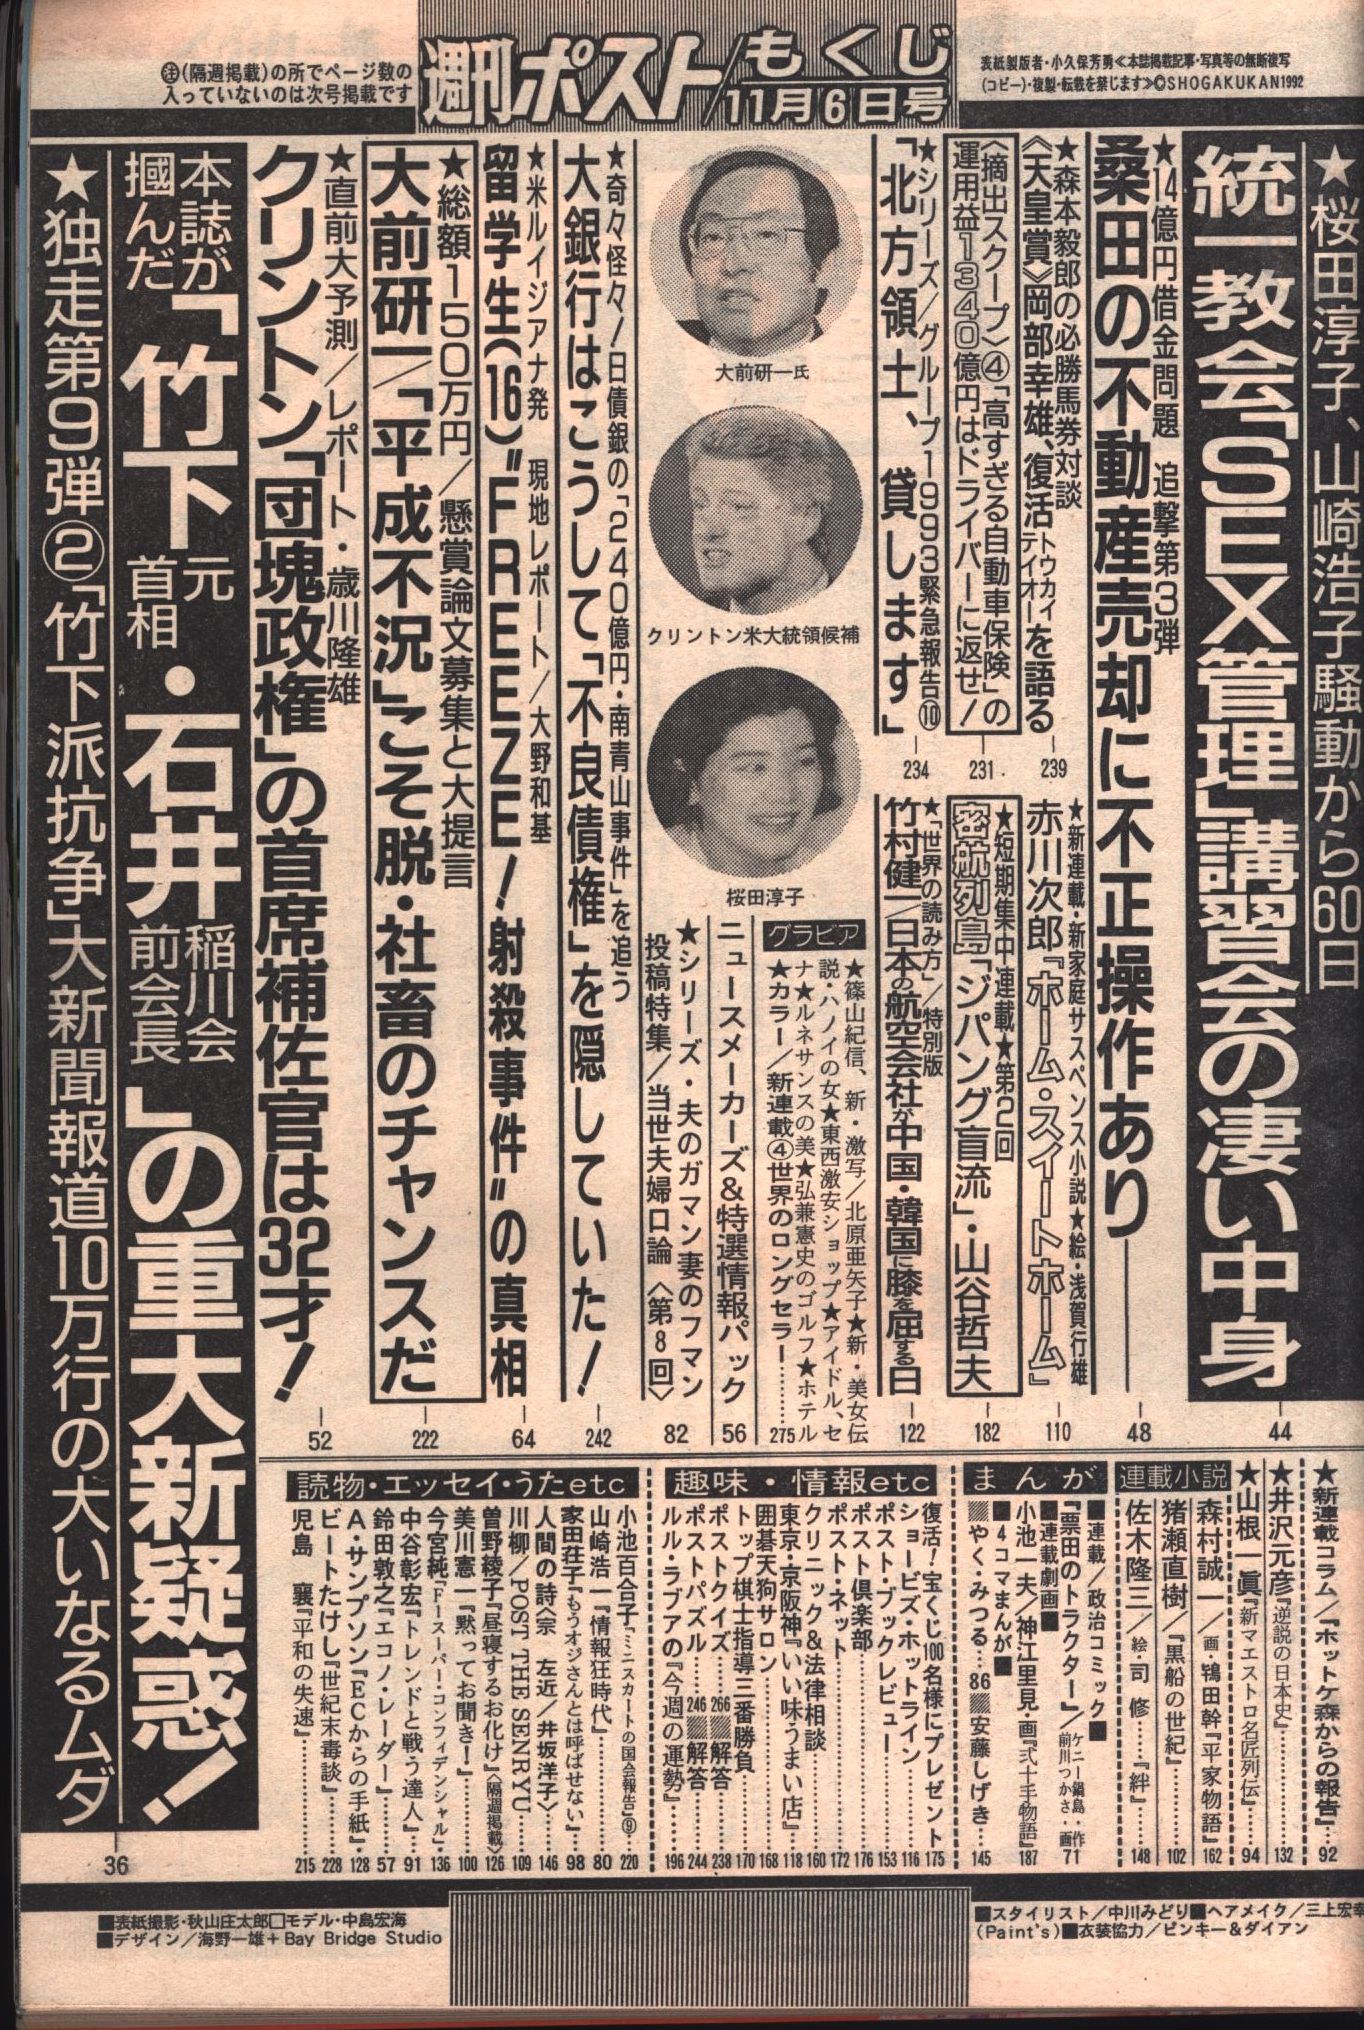 週刊ポスト/もくじ
11月6日号
㊟(隔週掲載)の所でページ数の
入っていないのは次号掲載です
表紙製版者・小久保芳勇≪本誌掲載記事・写真等の無断複写
(コピー)・複製・転載を禁じます≫©SHOGAKUKAN1992
★桜田淳子、山崎浩子騒動から60日
統一教会「SEX管理」講習会の凄い中身
44
★14億円借金問題 追撃第3弾
桑田の不動産売却に不正操作あり
48
★森本毅郎の必勝馬券対談
《天皇賞》岡部幸雄、復活トウカイテイオーを語る
239
〈摘出スクープ〉④「高すぎる自動車保険」の
運用益1340億円はドライバーに返せ!
231
★シリーズ/グループ1993緊急報告⑩
「北方領土、貸します」
234
★新連載・新家庭サスペンス小説★絵・浅賀行雄
赤川次郎『ホーム・スイートホーム』
110
★短期集中連載★第2回
密航列島「ジパング盲流」・山谷哲夫
182
★「世界の読み方」/特別版
竹村健一/日本の航空会社が中国・韓国に膝を屈する日
122
大前研一氏
クリントン米大統領候補
桜田淳子
グラビア
★篠山紀信、新・激写/北原亜矢子★新・美女伝
説・ハノイの女★東西激安ショップ★アイドル、セ
ナ★ルネサンスの美★弘兼憲史のゴルフ★ホテル
★カラー/新連載④世界のロングセラー!……275
ニュースメーカーズ&特選情報パック
56
★シリーズ・夫のガマン妻のフマン
投稿特集/当世夫婦口論〈第8回〉
82
★奇々怪々!日債銀の「240億円・南青山事件」を追う
大銀行はこうして「不良債権」を隠していた!
242
★米ルイジアナ発 現地レポート/大野和基
留学生(16)〝FREEZE!射殺事件〟の真相
64
★総額150万円/懸賞論文募集と大提言
大前研一/「平成不況」こそ脱・社畜のチャンスだ
222
★直前大予測/レポート・歳川隆雄
クリントン「団塊政権」の首席補佐官は32才!
52
本誌が
摑んだ
「竹下元首相・石井稲川会前会長」の重大新疑惑!
★独走第9弾②「竹下派抗争」大新聞報道10万行の大いなるムダ
36
★新連載コラム/『ホットケ森からの報告』…92
★井沢元彦『逆説の日本史』……132
★山根一眞『新マエストロ名匠列伝』……94
連載小説
森村誠一/画・鴇田幹『平家物語』162
猪瀬直樹/『黒船の世紀』……102
佐木隆三/絵・司 修……『絆』……148
まんが
■連載/政治コミック■
『票田のトラクター』/ケニー鍋島・作 前川つかさ・画 71
■連載劇画■
小池一夫/神江里見・画『弐十手物語』187
■4コマまんが■
▨やく・みつる…86▨安藤しげき…145
趣味・情報etc
復活!宝くじ100名様にプレゼント175
ショービズ・ホットライン……116
ポスト・ブックレビュー……153
ポスト倶楽部……176
ポスト・ネット……172
クリニック&法律相談……160
東京・京阪神『いい味うまい店』…118
囲碁天狗サロン……168
トップ棋士指導三番勝負……170
ポストクイズ……266▨解答…238
ポストパズル……246▨解答…244
ルル・ラブアの『今週の運勢』……196
読物・エッセイ・うたetc
小池百合子『ミニスカートの国会報告』⑨…220
山崎浩一『情報狂時代』……80
家田荘子『もうオジさんとは呼ばせない』…98
人間の詩〈宗 左近/井坂洋子〉…146
川柳/POST THE SENRYU…109
曽野綾子『昼寝するお化け』〈隔週掲載〉126
美川憲一『黙ってお聞き!』……100
今宮純『Fースーパー・コンフィデンシャル』・136
中谷彰宏『トレンドと戦う達人』…91
鈴田敦之『エコノ・レーダー』……57
A・サンプソン『ECからの手紙』・128
ビートたけし『世紀末毒談』……228
児島 襄『平和の失速』……215
■表紙撮影・秋山庄太郎□モデル・中島宏海
■デザイン/海野一雄+Bay Bridge Studio
■スタイリスト/中川みどり■ヘアメイク/三上宏幸
(Paint's)■衣装協力/ピンキー&ダイアン